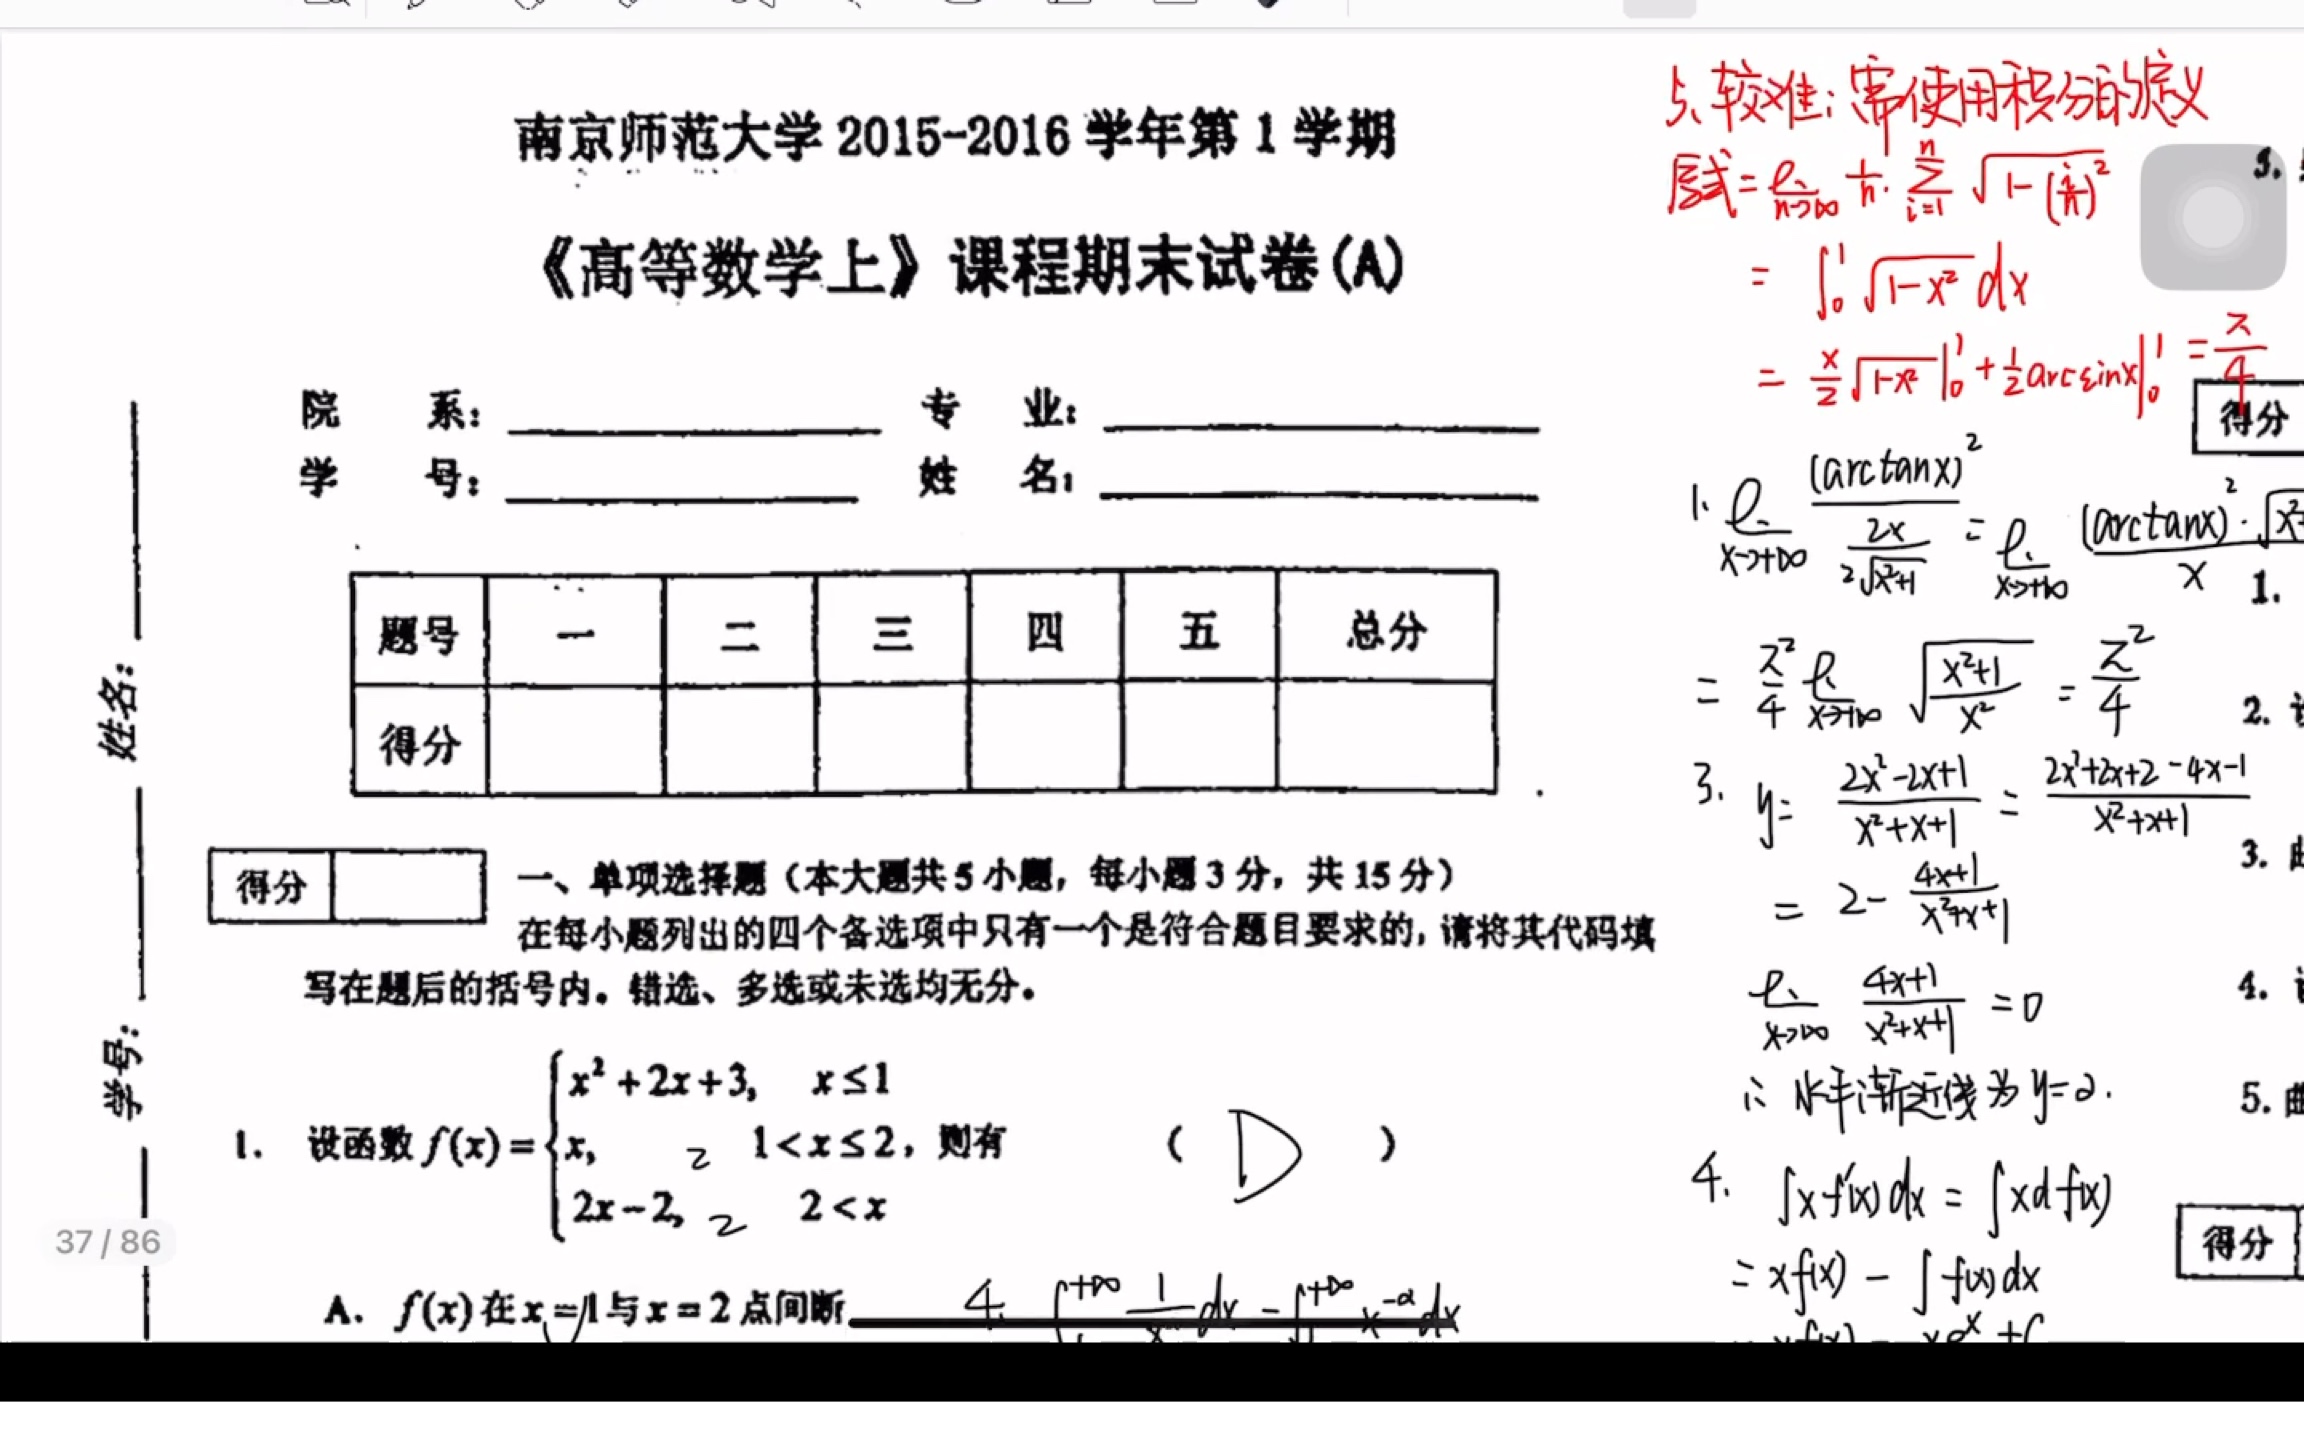 南京师范大学 2015-2016 学年第 1 学期
《高等数学上》课程期末试卷(A)
院 系: 专 业:
学 号: 姓 名:
题号 一 二 三 四 五 总分
得分
得分
一、单项选择题（本大题共 5 小题，每小题 3 分，共 15 分）
在每小题列出的四个备选项中只有一个是符合题目要求的，请将其代码填
写在题后的括号内。错选、多选或未选均无分。
x² + 2x + 3, x ≤ 1
1. 设函数 f(x) = { x, 2 1 < x ≤ 2，则有 ( D )
2x − 2, 2 2 < x
A. f(x) 在 x = 1 与 x = 2 点间断
姓名:
学号:
37 / 86
5、较难：需使用积分的定义
原式 = lim n→∞ 1/n · Σ i=1 n √(1-(i/n)²)
= ∫₀¹ √(1-x²) dx
= x/2 √(1-x²) |₀¹ + 1/2 arcsinx |₀¹ = π/4
1. lim x→+∞ (arctanx)² / (2x / 2√(x²+1)) = lim x→+∞ (arctanx)² · √x² / x
= π²/4 lim x→+∞ √((x²+1)/x²) = π²/4
3. y = (2x²-2x+1)/(x²+x+1) = (2x²+2x+2-4x-1)/(x²+x+1)
= 2 - (4x+1)/(x²+x+1)
lim x→∞ (4x+1)/(x²+x+1) = 0
∴ 水平渐近线为 y=2.
4. ∫xf'(x)dx = ∫xdf(x)
= xf(x) - ∫f(x)dx
3.
得分
1.
2.
3.
4.
5.
得分